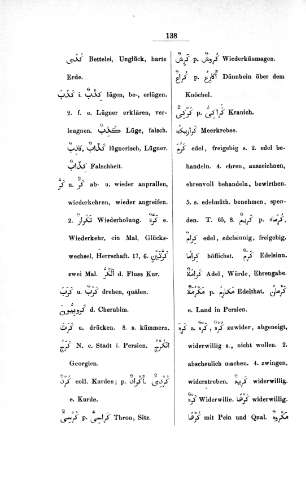 138
كُدْيَى Bettelei, Unglück, harte
Erde.
كَذَبَ i كِذْبٌ lügen, be-, erlügen.
2. f. u. Lügner erklären, ver-
leugnen. كَذِبٌ Lüge, falsch.
كَاذِبٌ, كَذَّابٌ lügnerisch, Lügner.
كِذْبٌ Falschheit.
كَرَّ u. كَرٌّ ab- u. wieder anprallen,
wiederkehren, wieder angreifen.
2. تَكْرَارٌ Wiederholung. كَرَّةٌ e.
Wiederkehr, ein Mal. Glücks-
wechsel, Herrschaft. 17, 6. كَرَّتَيْنِ
zwei Mal. الْكُرُّ d. Fluss Kur.
كَرَبَ u كَرْبٌ drehen, quälen.
كَرُوبِيُّونَ d. Cherubim.
كَرَثَ u. drücken. 8. s. kümmern.
الْكَرْجُ N. e. Stadt i. Persien.
Georgien.
كُرْدٌ coll. Kurden; p. أَكْرَادٌ. كُرْدِيٌّ
e. Kurde.
كُرْسِيٌّ p. كَرَاسِيُّ Thron, Sitz.
كَرِشٌ p. كُرُوشٌ Wiederkäumagen.
كُرَاعٌ p. أَكَارِعُ Dünnbein über dem
Knöchel.
كُرْكِيٌّ p. كَرَاكِيُّ Kranich.
Meerkrebse.
كَرُمَ edel, freigebig s. 2. edel be-
handeln. 4. ehren, auszeichnen,
ehrenvoll behandeln, bewirthen.
5. s. edelmüth. benehmen, spen-
den. T. 65, 8. كَرِيمٌ p. كِرَامٌ
u. كُرَمَاءُ edel, edelsinnig, freigebig.
höflichst. كَرَمٌ Edelsinn.
كَرَامَةٌ Adel, Würde, Ehrengabe.
مَكْرُمَةٌ p. مَكَارِمُ Edelthat. كَرْمَانُ
e. Land in Persien.
كَرِهَ a كُرْهٌ, كَرْهٌ zuwider, abgeneigt,
widerwillig s., nicht wollen. 2.
abscheulich machen. 4. zwingen,
widerstreben. كَرِيهٌ widerwillig.
كُرْهٌ Widerwille. كَرْهًا widerwillig.
كُرْهًا mit Pein und Qual. مَكْرُوهٌ